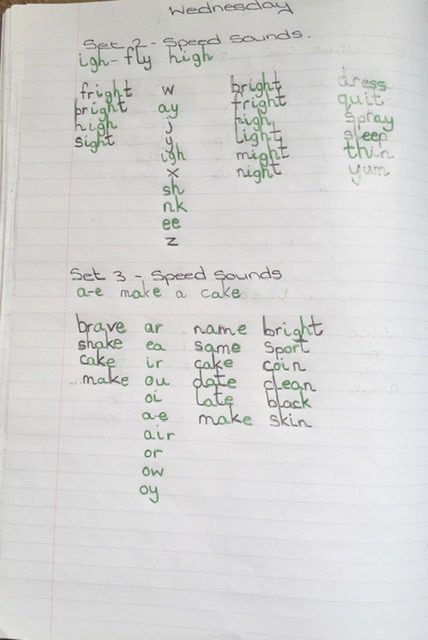 Wednesday
Set 2 - Speed Sounds.
igh - fly high
fright w bright dress
bright ay fright quit
high j high spray
sight y light sleep
igh might thin
x night yum
sh
nk
ee
z
Set 3 - Speed Sounds
a-e make a cake
brave ar name bright
shake ea same sport
cake ir cake coin
make ou date clean
oi late black
a-e make skin
air
or
ow
oy